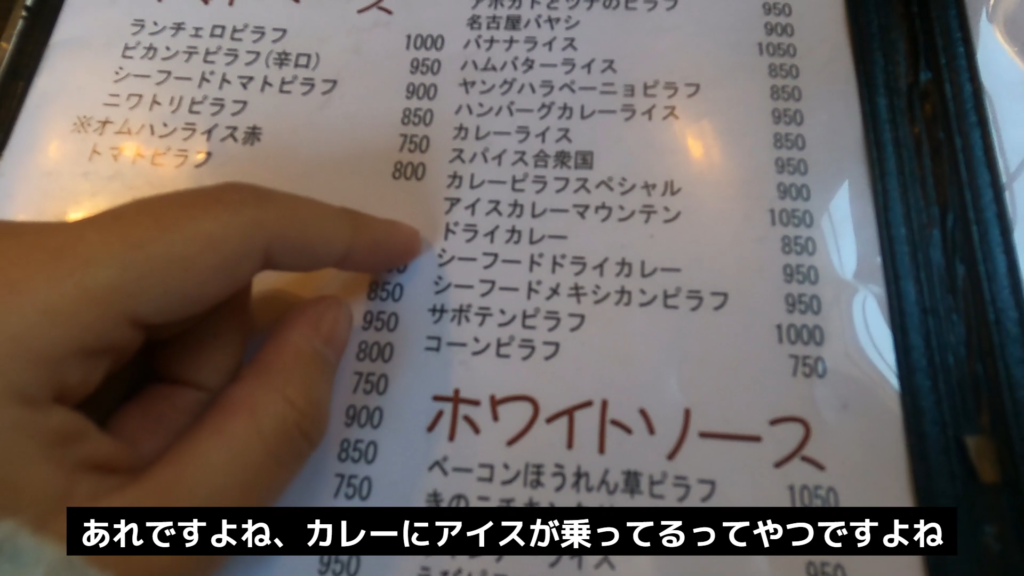 ランチェロピラフ 1000
ピカンテピラフ(辛口) 950
シーフードトマトピラフ 900
ニワトリピラフ 850
※オムハンライス赤 750
トマトピラフ 800
850
950
800
750
900
850
750
950
アボカドとツナのピラフ 950
名古屋バヤシ 900
バナナライス 1050
ハムバターライス 850
ヤングハラペーニョピラフ 850
ハンバーグカレーライス 950
カレーライス 850
スパイス合衆国 950
カレーピラフスペシャル 900
アイスカレーマウンテン 1050
ドライカレー 850
シーフードドライカレー 950
シーフードメキシカンピラフ 950
サボテンピラフ 1000
コーンピラフ 750
ホワイトソース
ベーコンほうれん草ピラフ 1050
950
あれですよね、カレーにアイスが乗ってるってやつですよね